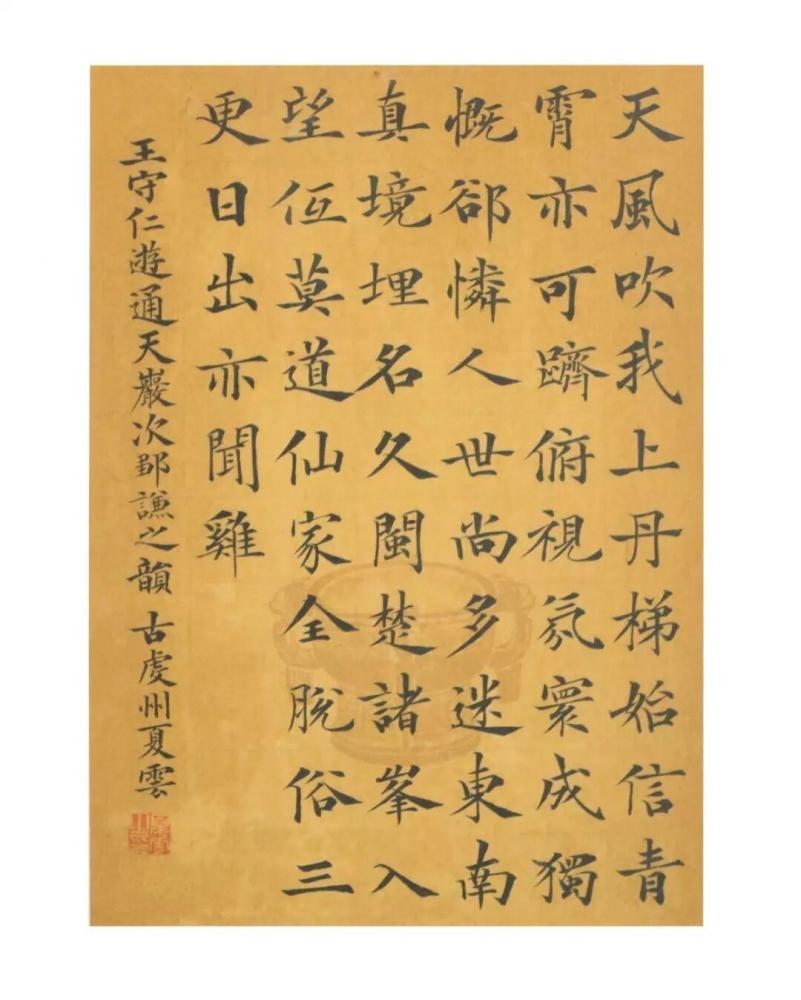 天風吹我上丹梯始信青
霄亦可躋俯視氛寰成獨
慨卻憐人世尚多迷東南
真境埋名久閩楚諸峯入
望低莫道仙家全脫俗三
更日出亦聞雞
王守仁遊通天巖次鄒謙之韻 古虔州夏雲